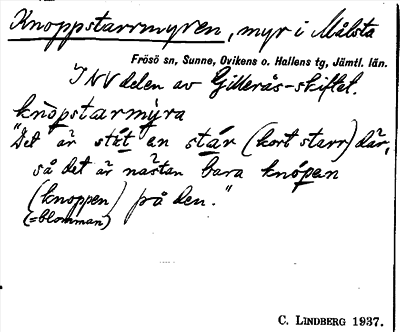 Knoppstarrmyren, myr i Målsta
Frösö sn, Sunne, Ovikens o. Hallens tg, Jämtl. län.
I NV delen av Gillerås-skiftet.
knòpstarmýra
"Det är stét en stár (kort starr) där,
så det är nästan bara knópen
(knoppen) på den."
(=blomman)
C. LINDBERG 1937.